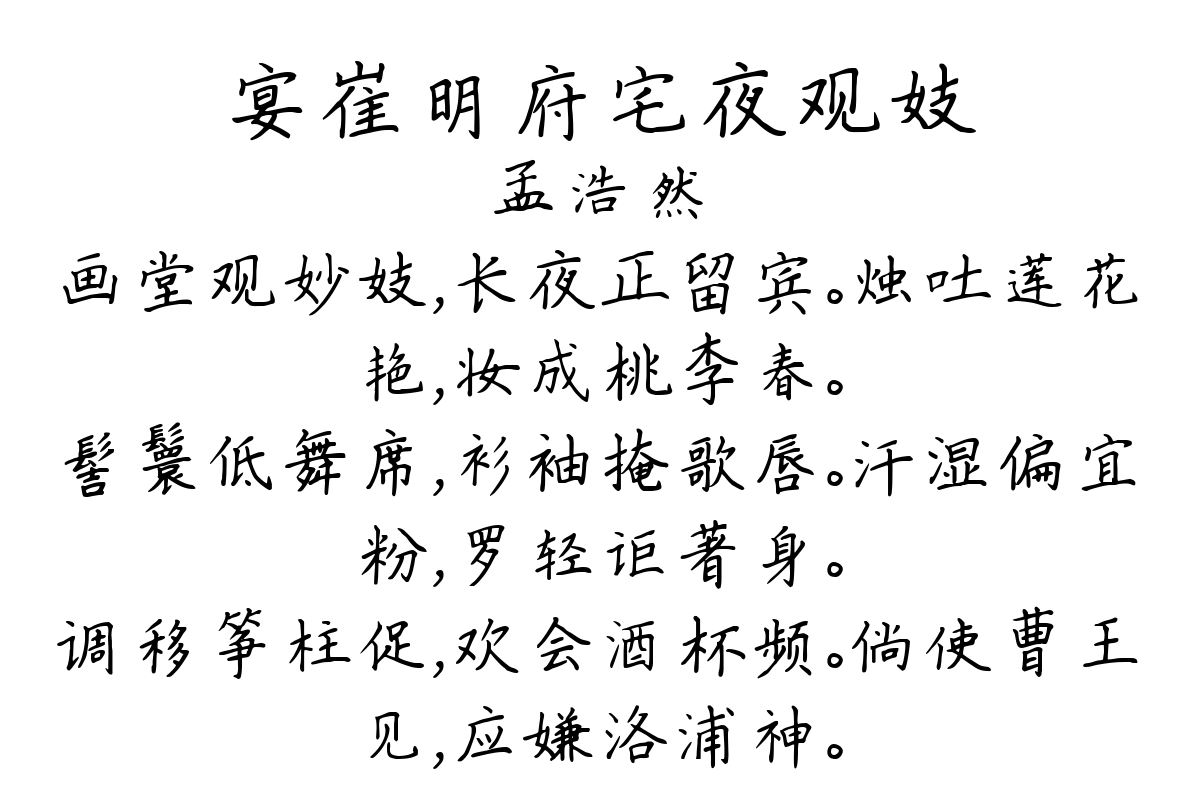 宴崔明府宅夜观妓
孟浩然
画堂观妙妓,长夜正留宾。烛吐莲花
艳,妆成桃李春。
髻鬟低舞席,衫袖掩歌唇。汗湿偏宜
粉,罗轻讵著身。
调移筝柱促,欢会酒杯频。倘使曹王
见,应嫌洛浦神。